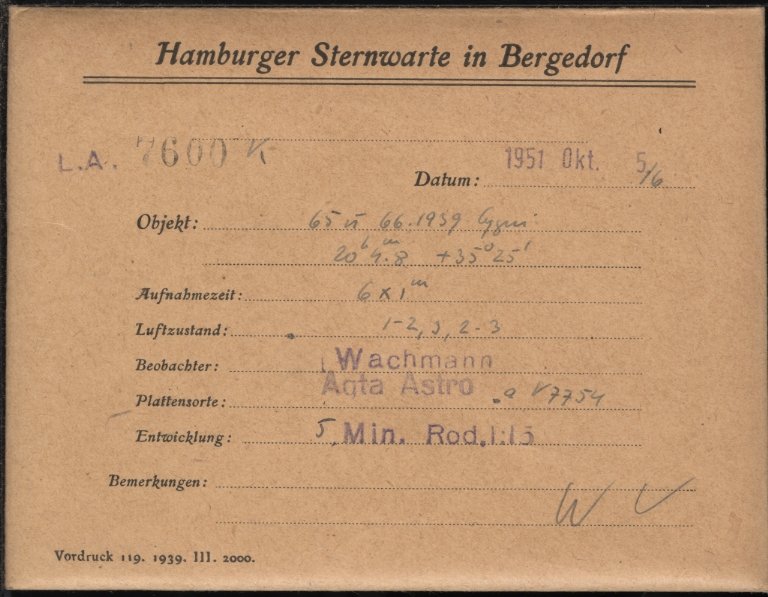 Hamburger Sternwarte in Bergedorf
L.A. 7600 K
Datum: 1951 Okt. 5/6
Objekt: 65 u 66.1939 Cygni
20h 4m.8 +35° 25'
Aufnahmezeit: 6 x 1m
Luftzustand: 1-2, 3, 2-3
Beobachter: Wachmann
Plattensorte: Agfa Astro a V7754
Entwicklung: 5 Min. Rod. 1:15
Bemerkungen:
W
Vordruck 119. 1939. III. 2000.